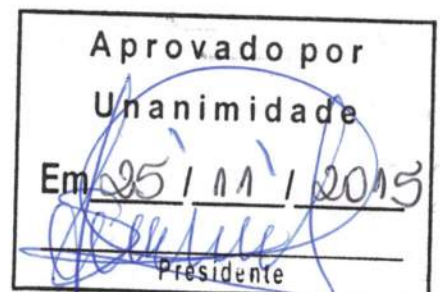 Aprovado por
Unanimidade
Em 25 / 11 / 2015
Presidente